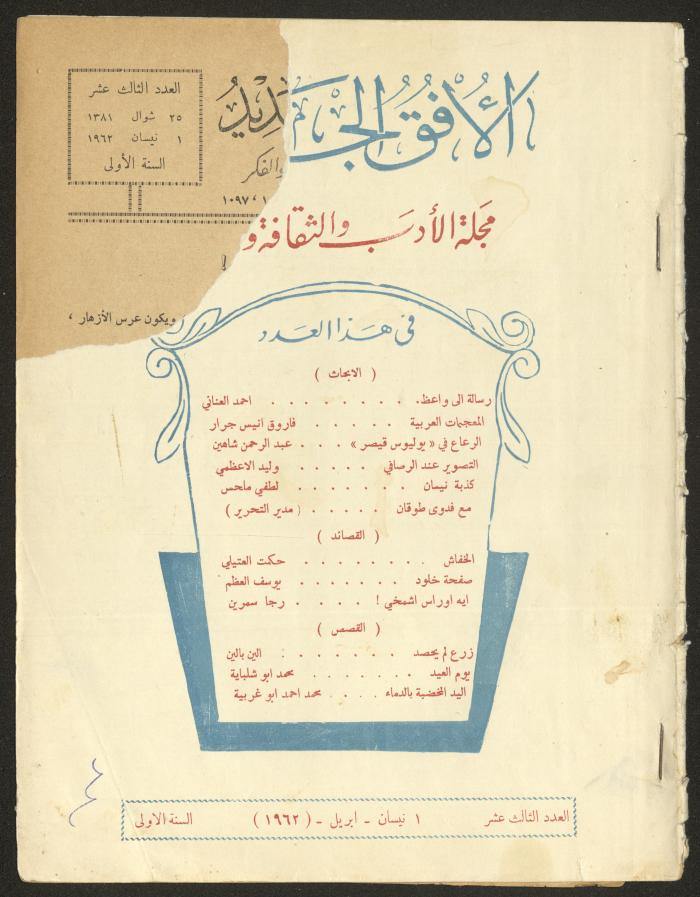 العدد الثالث عشر
٢٥ شوال ١٣٨١
١ نيسان ١٩٦٢
السنة الأولى
الأُفُق الجَديدُ
والفكر
١٠٩٧،١
مجَلة الأدبَ والثقافة و
ويكون عرس الأزهار ،
في هَذا العَدد
( الابحاث )
رسالة الى واعظ . . . . . . . . احمد العناني
المعجمات العربية . . . . . فاروق انيس جرار
الرعاع في « يوليوس قيصر » . . . عبد الرحمن شاهين
التصوير عند الرصافي . . . . . وليد الاعظمي
كذبة نيسان . . . . . . . لطفي ملحس
مع فدوى طوقان . . . . . ( مدير التحرير )
( القصائد )
الخفاش . . . . . . . . حكمت العتيلي
صفحة خلود . . . . . . . يوسف العظم
ايه اوراس اشمخي ! . . . . رجا سمرين
( القصص )
زرع لم يحصد . . . . . . . الين بالين
يوم العيد . . . . . . . محمد ابو شلباية
اليد المخضبة بالدماء . . . . محمد احمد ابو غربية
العدد الثالث عشر ١ نيسان - ابريل - ( ١٩٦٢ ) السنة الاولى